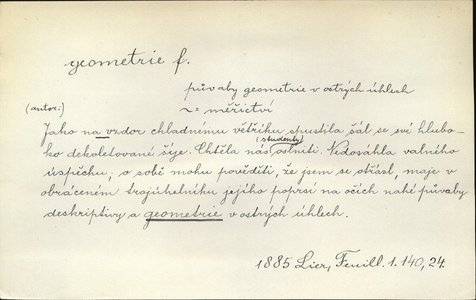 geometrie f.
půvaby geometrie v ostrých úhlech
~ = měřictví
(autor:)
Jako na vzdor chladnému větříku spustila šál se své hlubo-
ko dekoletované šíje. Chtěla nás (studenty) oslniti. Nedosáhla valného
úspěchu, o sobě mohu pověděti, že jsem se otřásl, maje v
obráceném trojúhelníku jejího poprsí na očích nahé půvaby
deskriptivy a geometrie v ostrých úhlech.
1885 Lier, Feuill. 1. 140, 24.